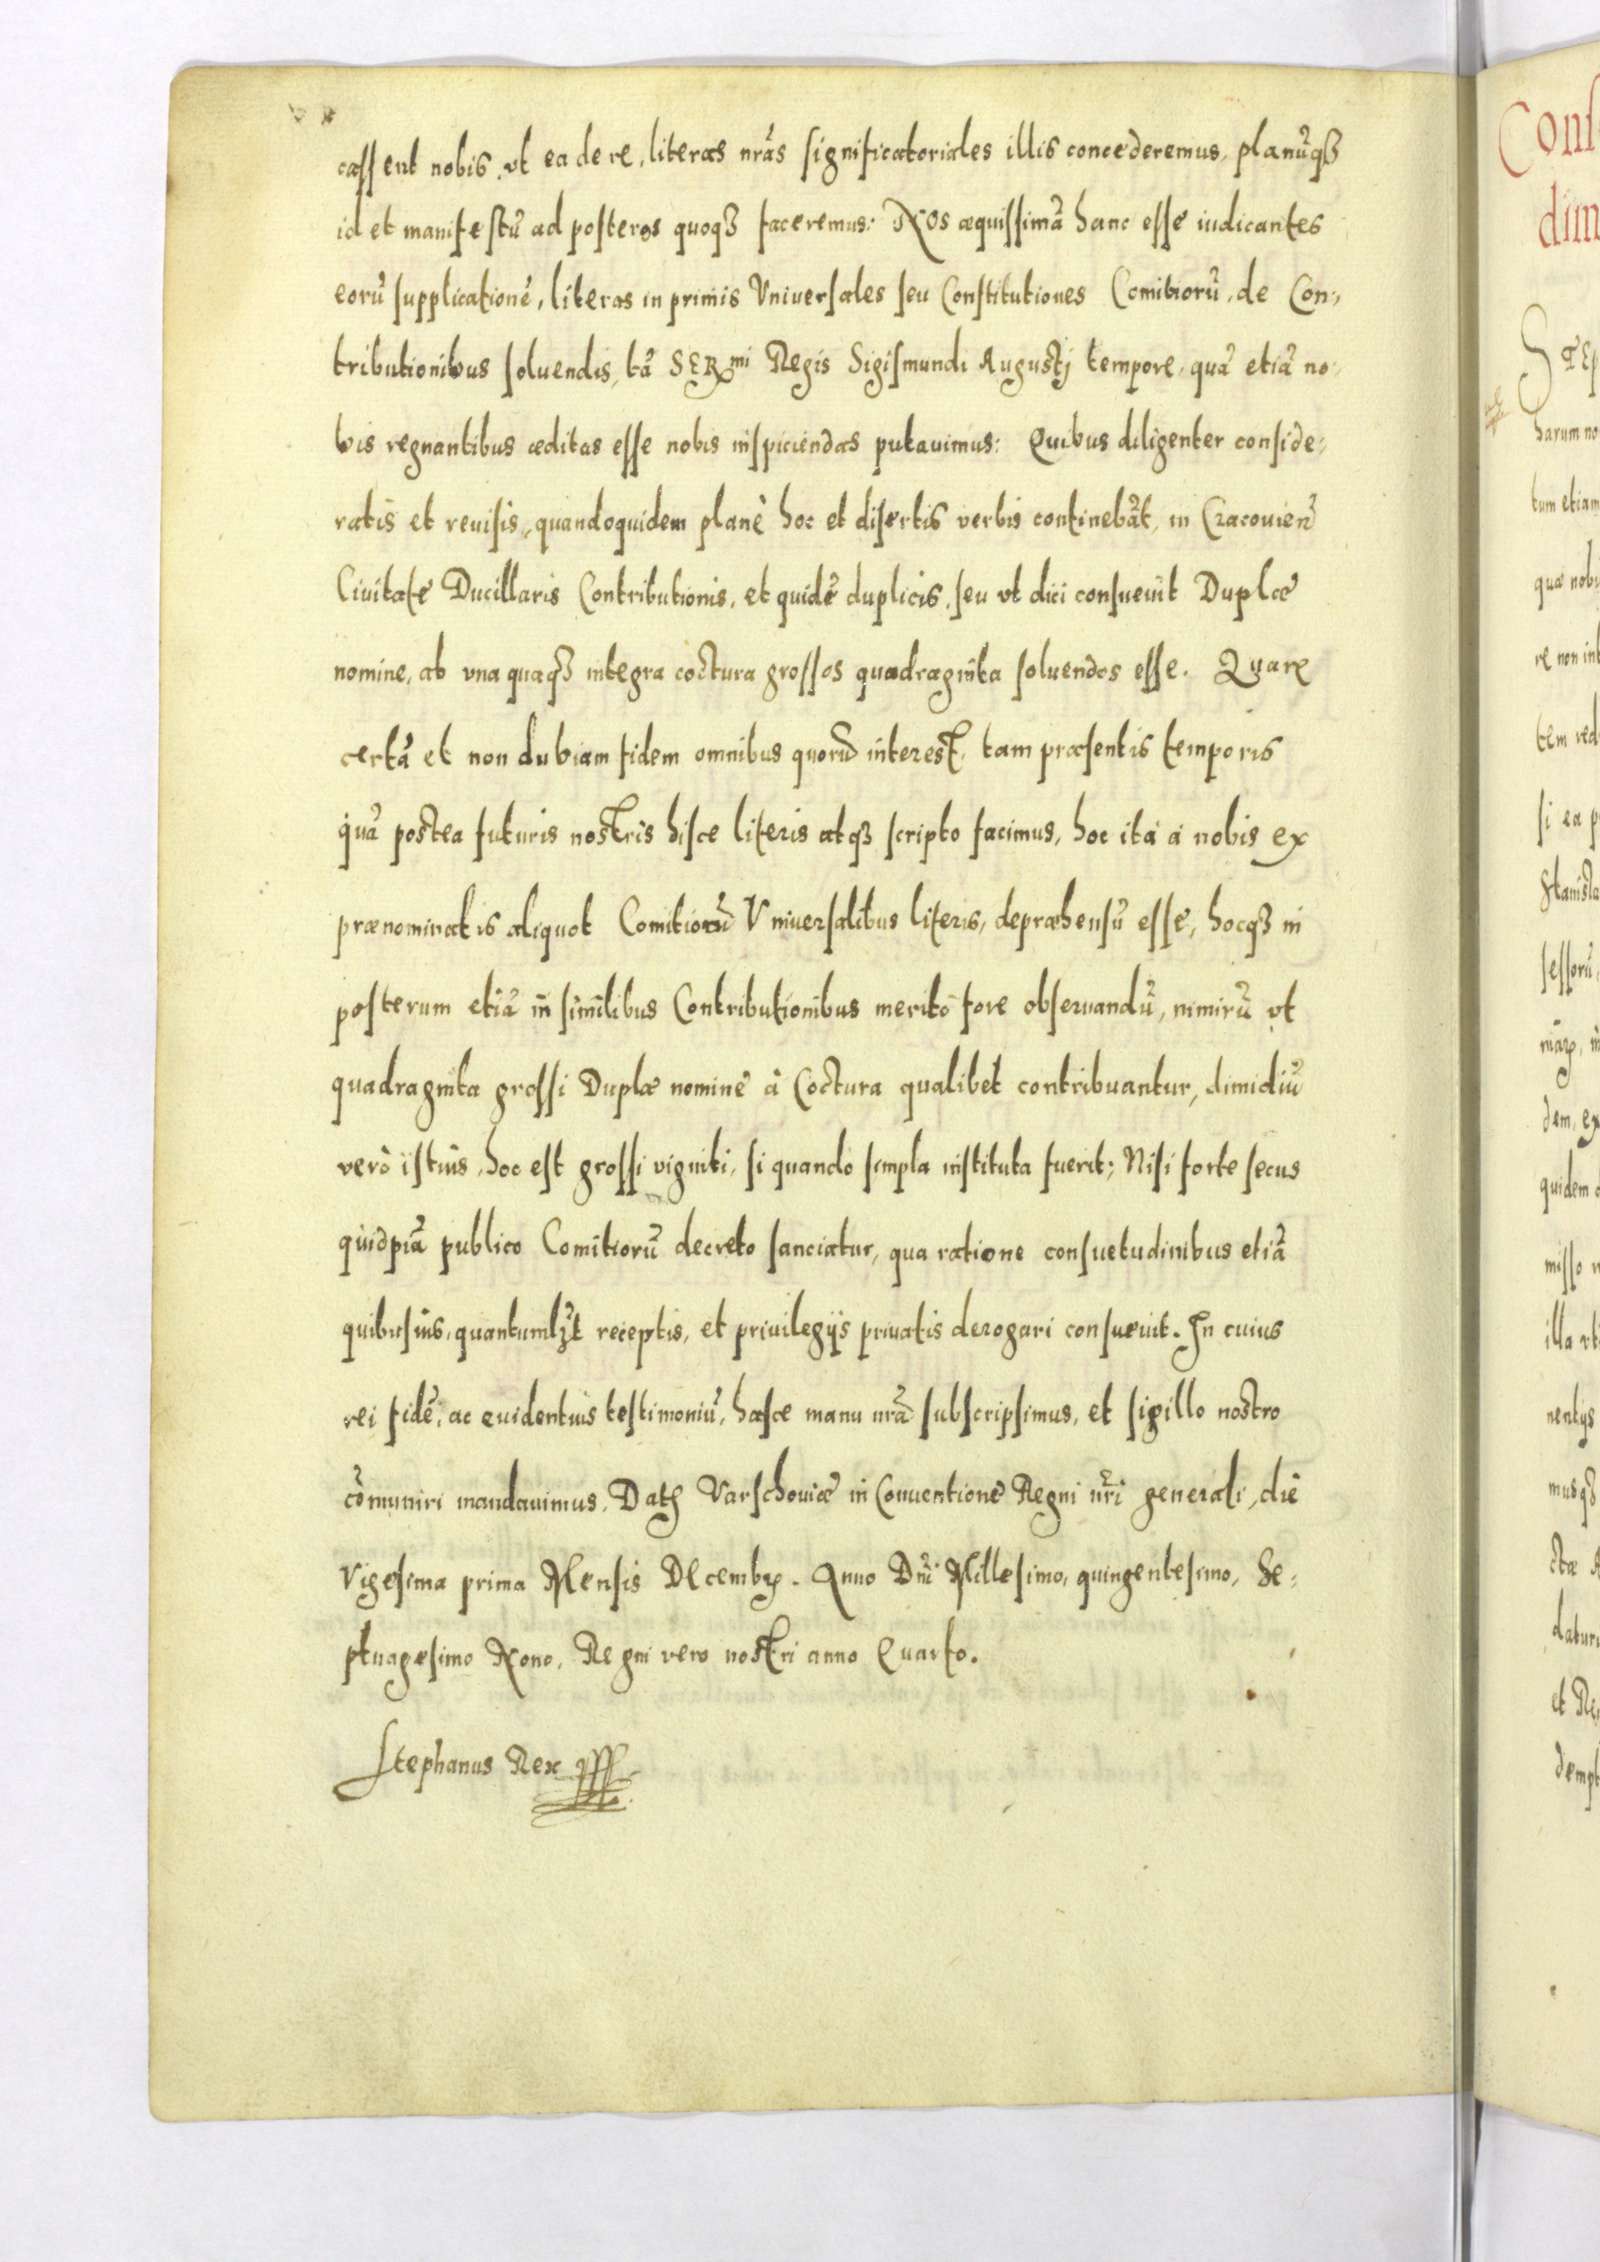 cassent nobis, vt ea de re, literas nr̃as significatoriales illis concederemus, planũq́ꝫ
id et manifestũ ad posteros quoqꝫ faceremus: Nos æquissimã hanc esse iudicantes
eorũ supplicationẽ, literas in primis Vniversales seu Constitutiones Comitiorũ, de Con-
tributionibus soluendis, tã SERmi Regis Sigismundi Augustj tempore, quã etiã no-
bis regnantibus æditas esse nobis inspiciendas putauimus: Quibus diligenter conside-
ratis et reuisis, quandoquidem planè hoc et disertis verbis continebãt, in Cracouieñ
Ciuitate Ducillaris Contributionis, et quidẽ duplicis, seu vt dici consueuit Duplæ
nomine, ab vna quaqꝫ integra coctura grossos quadraginta soluendos esse. Quare
certã et non dubiam fidem omnibus quorũ interest, tam præsentis temporis
quã postea futuris nostris hisce literis atqꝫ scripto facimus, hoc ita à nobis ex
prænominatis aliquot Comitiorũ Vniuersalibus literis, depræhensũ esse, hocqꝫ in
posterum etiã in similibus Contributionibus meritò fore obseruandũ, nimirũ vt
quadraginta grossi Duplæ nomine à Coctura qualibet contribuantur, dimidiũ
verò istius, hoc est grossi viginti, si quando simpla instituta fuerit; Nisi forte secus
quidpiã publico Comitiorũ decreto sanciatur, qua ratione consuetudinibus etiã
quibusuis, quantumlꝫt receptis, et priuilegijs priuatis derogari consueuit. In cuius
rei fidẽ, ac euidentius testimoniũ, hasce manu nr̃a subscripsimus, et sigillo nostro
cõmuniri mandauimus. Datꝫ Varschouiæ in Conuentione Regni nr̃i generali, die
Vigesima prima Mensis Decembꝝ. Anno Dñi Millesimo, quingentesimo, Se-
ptuagesimo Nono, Regni vero nostri anno Quarto.
Stephanus Rex